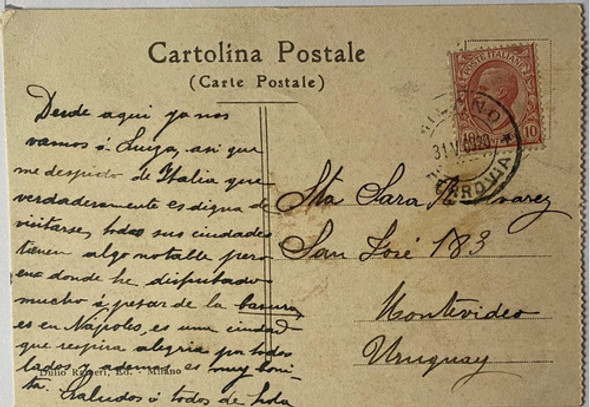 Cartolina Postale
(Carte Postale)
Desde aqui ya nos
vamos á Suiza, asi que
me despido de Italia que
verdaderamente es digna de
visitarse, todas sus ciudades
tienen algo notable pero
en donde he disfrutado
mucho á pesar de la basura,
es en Nápoles, es una ciudad
que respira alegria por todos
lados y ademas es muy boni-
ta. Saludos á todos de Lola
Dulio Ranieri, Ed. - Milano
POSTE ITALIANE
10 10
MILANO
FERROVIA
Sta Sara R Alvarez
San José 183
Montevideo
Uruguay